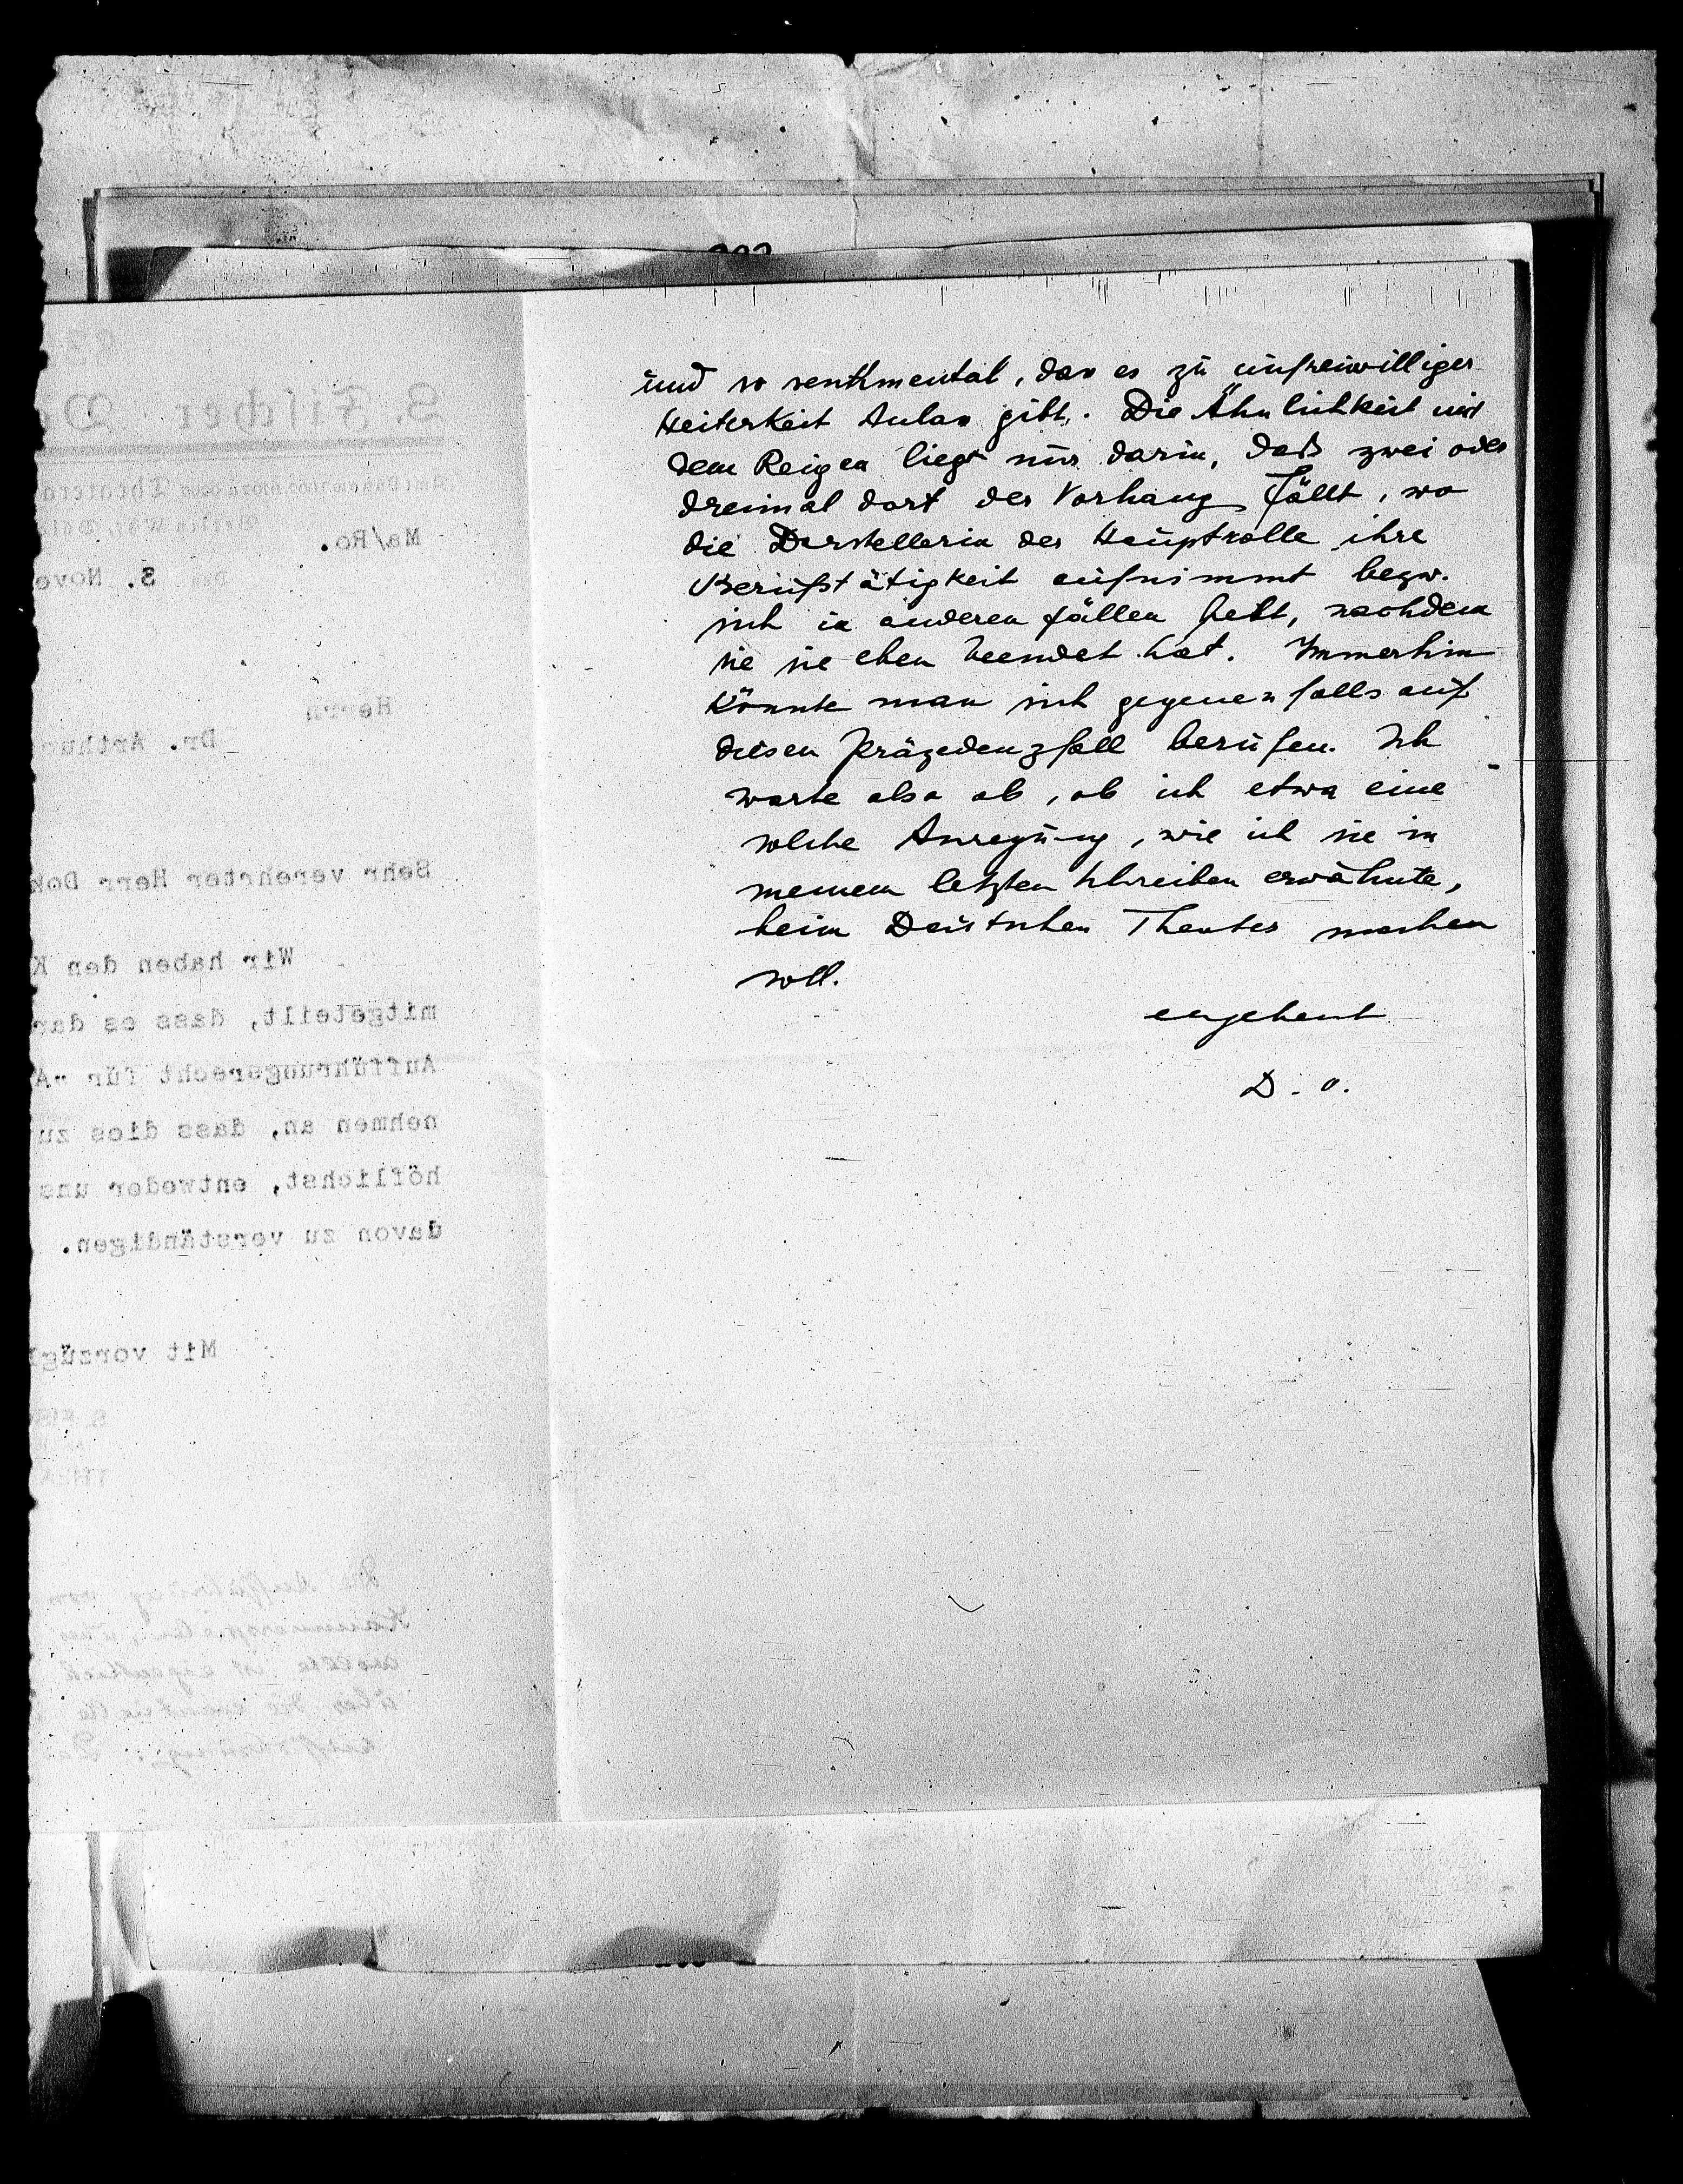 und so sentimental, das es zu unfreiwilliger
Heiterkeit Anlas gibt. Die Ähnlichkeit mit
dem Reigen liegt nur darin, daß zwei oder
dreimal dort der Vorhang fällt, wo
die Darstellerin der Hauptrolle ihre
Berufstätigkeit aufnimmt bezw.
sich in anderen Fällen hebt, nachdem
sie sie eben beendet hat. Immerhin
könnte man sich gegenenfalls auf
diesen Präzedenzfall berufen. Ich
warte also ab, ob ich etwa eine
solche Anregung, wie ich sie in
meinem letzten Schreiben erwähnte,
beim Deutschen Theater machen
soll.
ergebenst
D. O.
S. Fischer
Ma/Ro.
3. Nove
Herrn
Dr. Arthur
Sehr verehrter Herr Dok
Wir haben den K
mitgeteilt, dass es dar
Aufführungsrecht für "A
nehmen an, dass dies zu
höflichst, entweder uns
davon zu verständigen.
Mit vorzügl